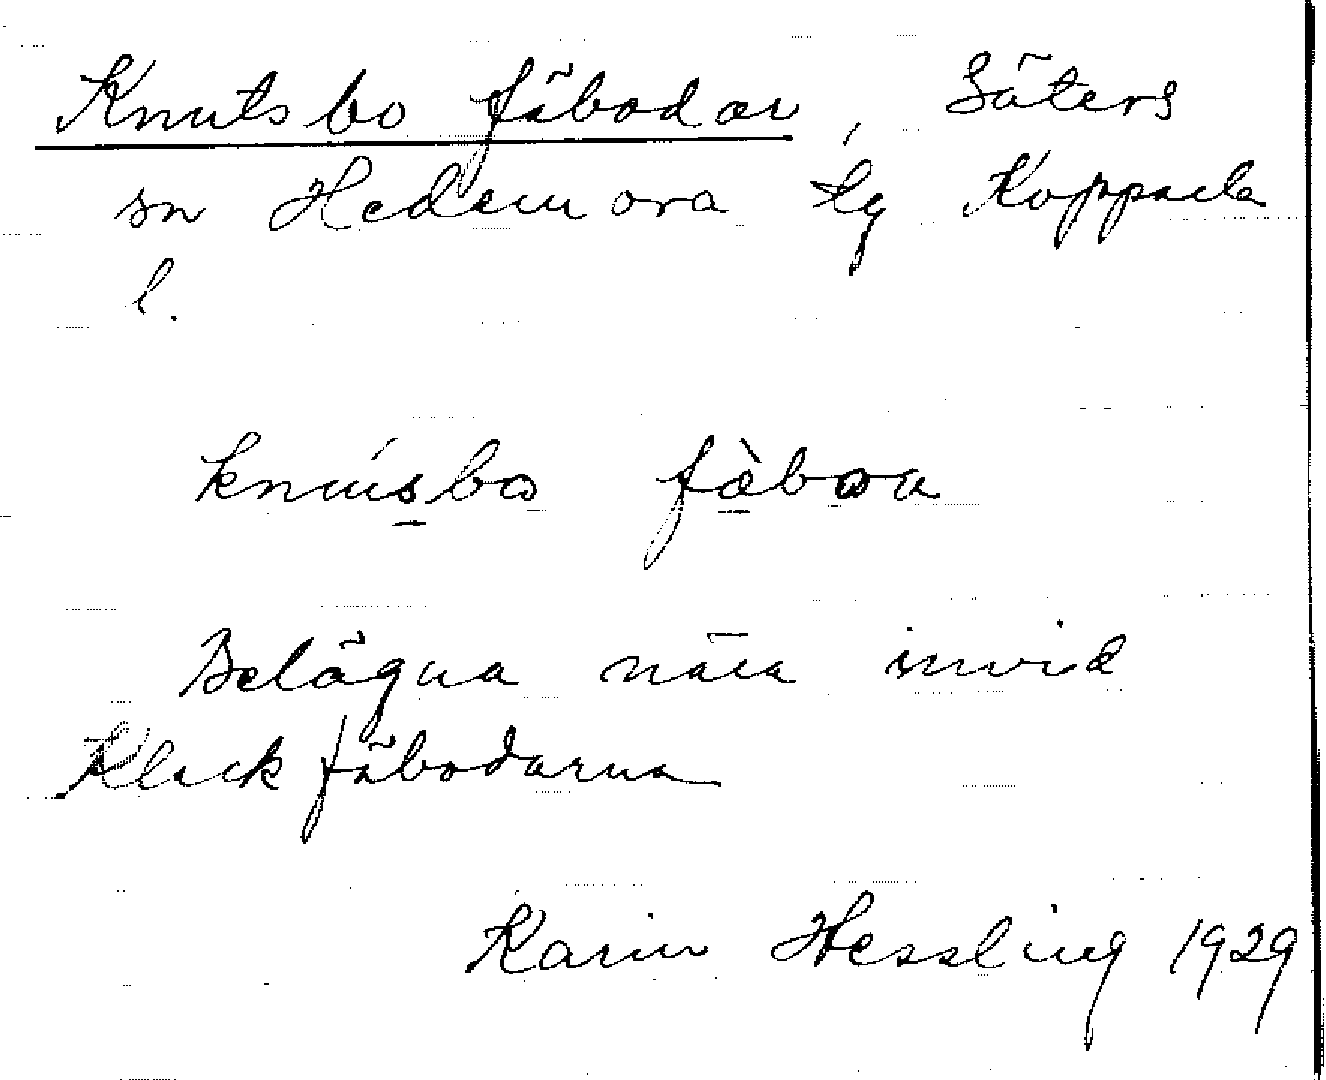 Knutsbo fäbodar, Säters
sn Hedemora tg Kopparb
l.
knúsbo fàboa
Belägna nära invid
Klack fäbodarna
Karin Hessling 1929